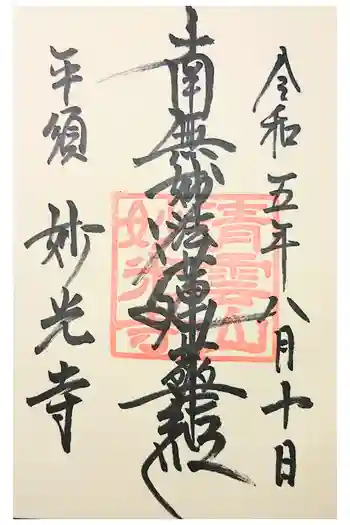 令和五年八月十日
南無妙法蓮華經
平須 妙光寺
青雲山
妙光寺